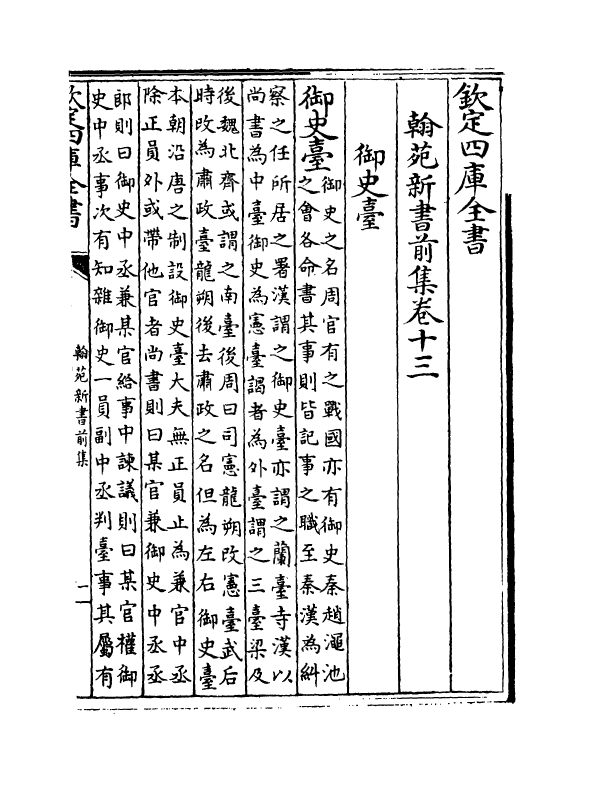 欽定四庫全書
翰苑新書前集卷十三
御史臺
御史臺
御史之名周官有之戰國亦有御史秦趙澠池
之會各命書其事則皆記事之職至秦漢為糾
察之任所居之署漢謂之御史臺亦謂之蘭臺寺漢以
尚書為中臺御史為憲臺謁者為外臺謂之三臺梁及
後魏北齊或謂之南臺後周曰司憲龍朔改憲臺武后
時改為肅政臺龍朔後去肅政之名但為左右御史臺
本朝沿唐之制設御史臺大夫無正員止為兼官中丞
除正員外或帶他官者尚書則曰某官兼御史中丞丞
郎則曰御史中丞兼某官給事中諫議則曰某官權御
史中丞事次有知雜御史一員副中丞判臺事其屬有
欽定四庫全書
翰苑新書前集
一